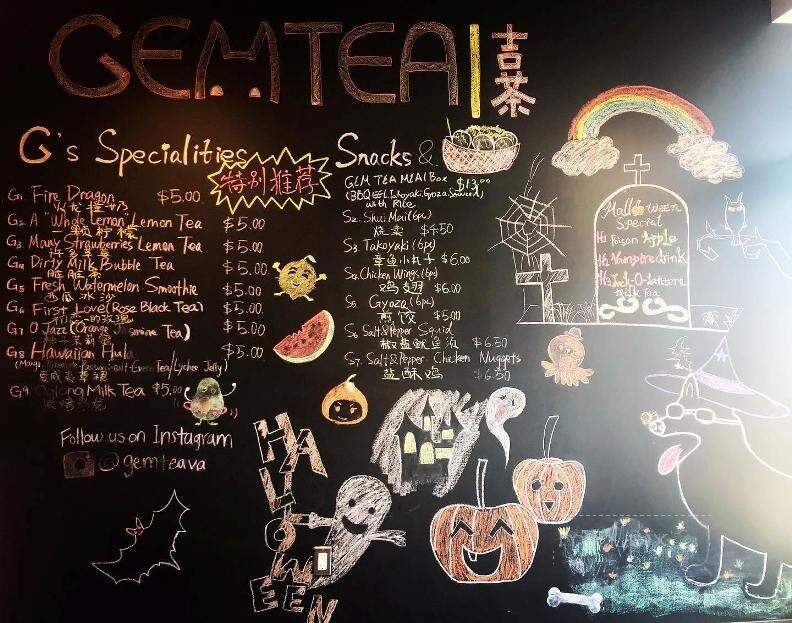 GEMTEA 吉茶
G's Specialities
特别推荐
G1 Fire Dragon $5.00
火龙
G2 A "Whole Lemon" Lemon Tea $5.00
一颗柠檬
G3 Many Strawberries Lemon Tea $5.00
G4 Dirty Milk Bubble Tea $5.00
脏脏
G5 Fresh Watermelon Smoothie $5.00
西瓜冰沙
G6 First Love (Rose Black Tea) $5.00
G7 O Jazz (Orange Jasmine Tea) $5.00
G8 Hawaiian Hula $5.00
Green Tea/Lychee Jelly)
夏威夷
G9 Oolong Milk Tea $5.00
Follow us on Instagram
@gemteava
Snacks &
GEM TEA MEAL Box $13.00
Takoyaki, Gyoza, Seaweed)
with Rice
S2. Shui Mai (6pc)
烧卖 $4.50
S3. Takoyaki (6ps)
章鱼小丸子 $6.00
S4. Chicken Wings (6pc)
鸡翅 $6.00
S5. Gyoza (6pc)
煎饺 $5.00
S6. Salt&Pepper Squid
椒盐鱿鱼须 $6.50
S7. Salt&Pepper Chicken Nuggets
盐酥鸡 $6.50
Halloween
Special
H1 Poison Apple
H2 Vampire drink
H3 Jack-O-Lantern
Tea
HALLOWEEN